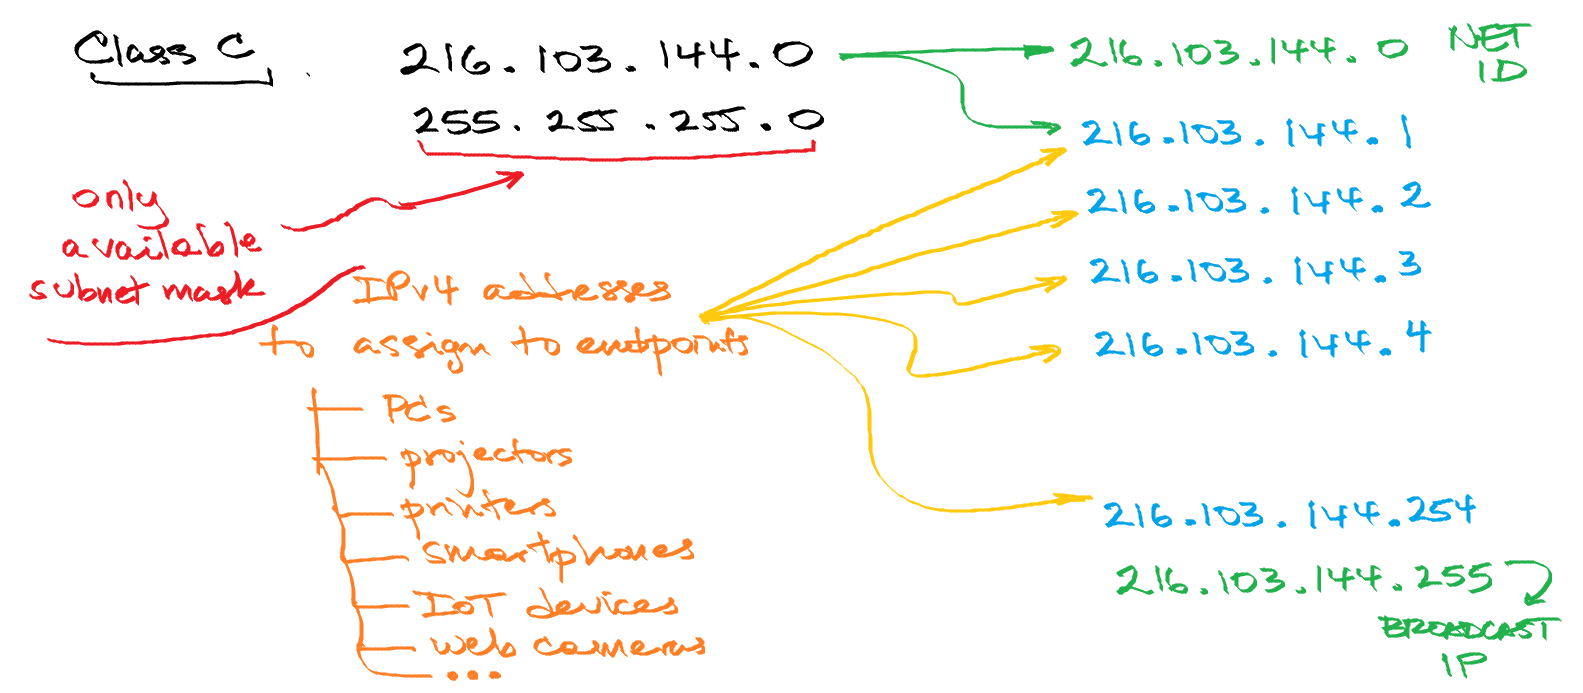 Class C
216.103.144.0
255.255.255.0
only
available
subnet mask
IPv4 addresses
to assign to endpoints
PCs
projectors
printers
smartphones
IoT devices
web cameras
...
216.103.144.0 NET ID
216.103.144.1
216.103.144.2
216.103.144.3
216.103.144.4
216.103.144.254
216.103.144.255
BROADCAST
IP